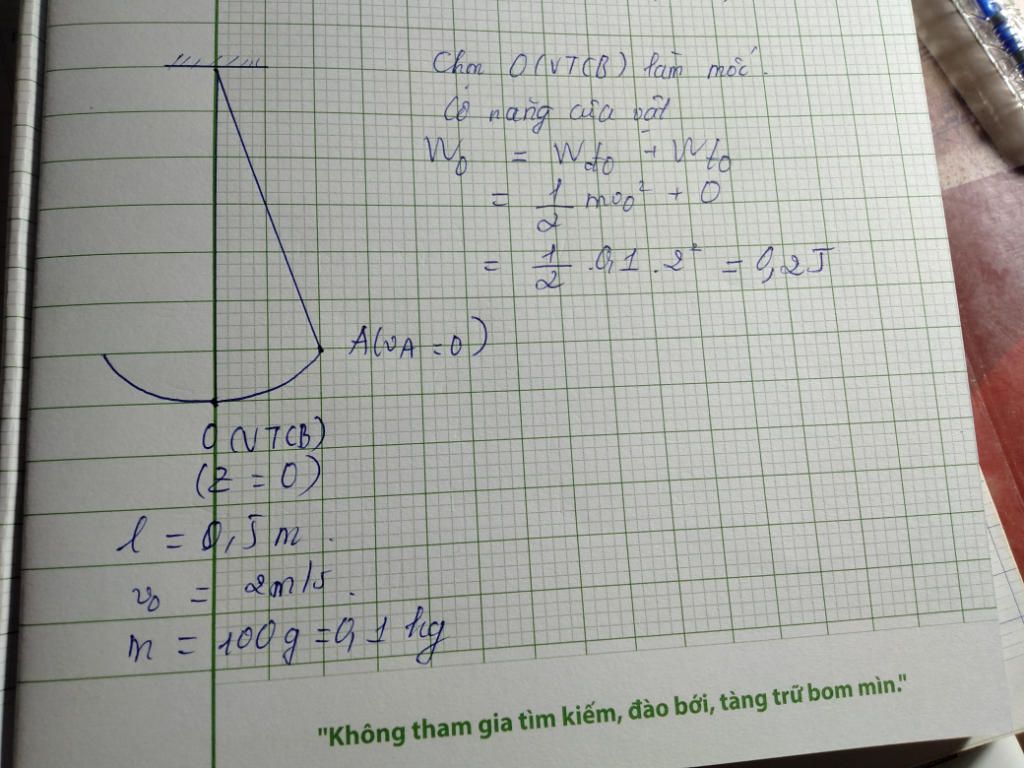 Chọn O(VTCB) làm mốc.
Cơ năng của vật
W₀ = Wđ₀ + Wt₀
= 1/2 mv₀² + 0
= 1/2 . 0,1 . 2² = 0,2 J
A(vA = 0)
O(VTCB)
(Z = 0)
l = 0,5 m.
v₀ = 2m/s.
m = 100g = 0,1 kg
"Không tham gia tìm kiếm, đào bới, tàng trữ bom mìn."